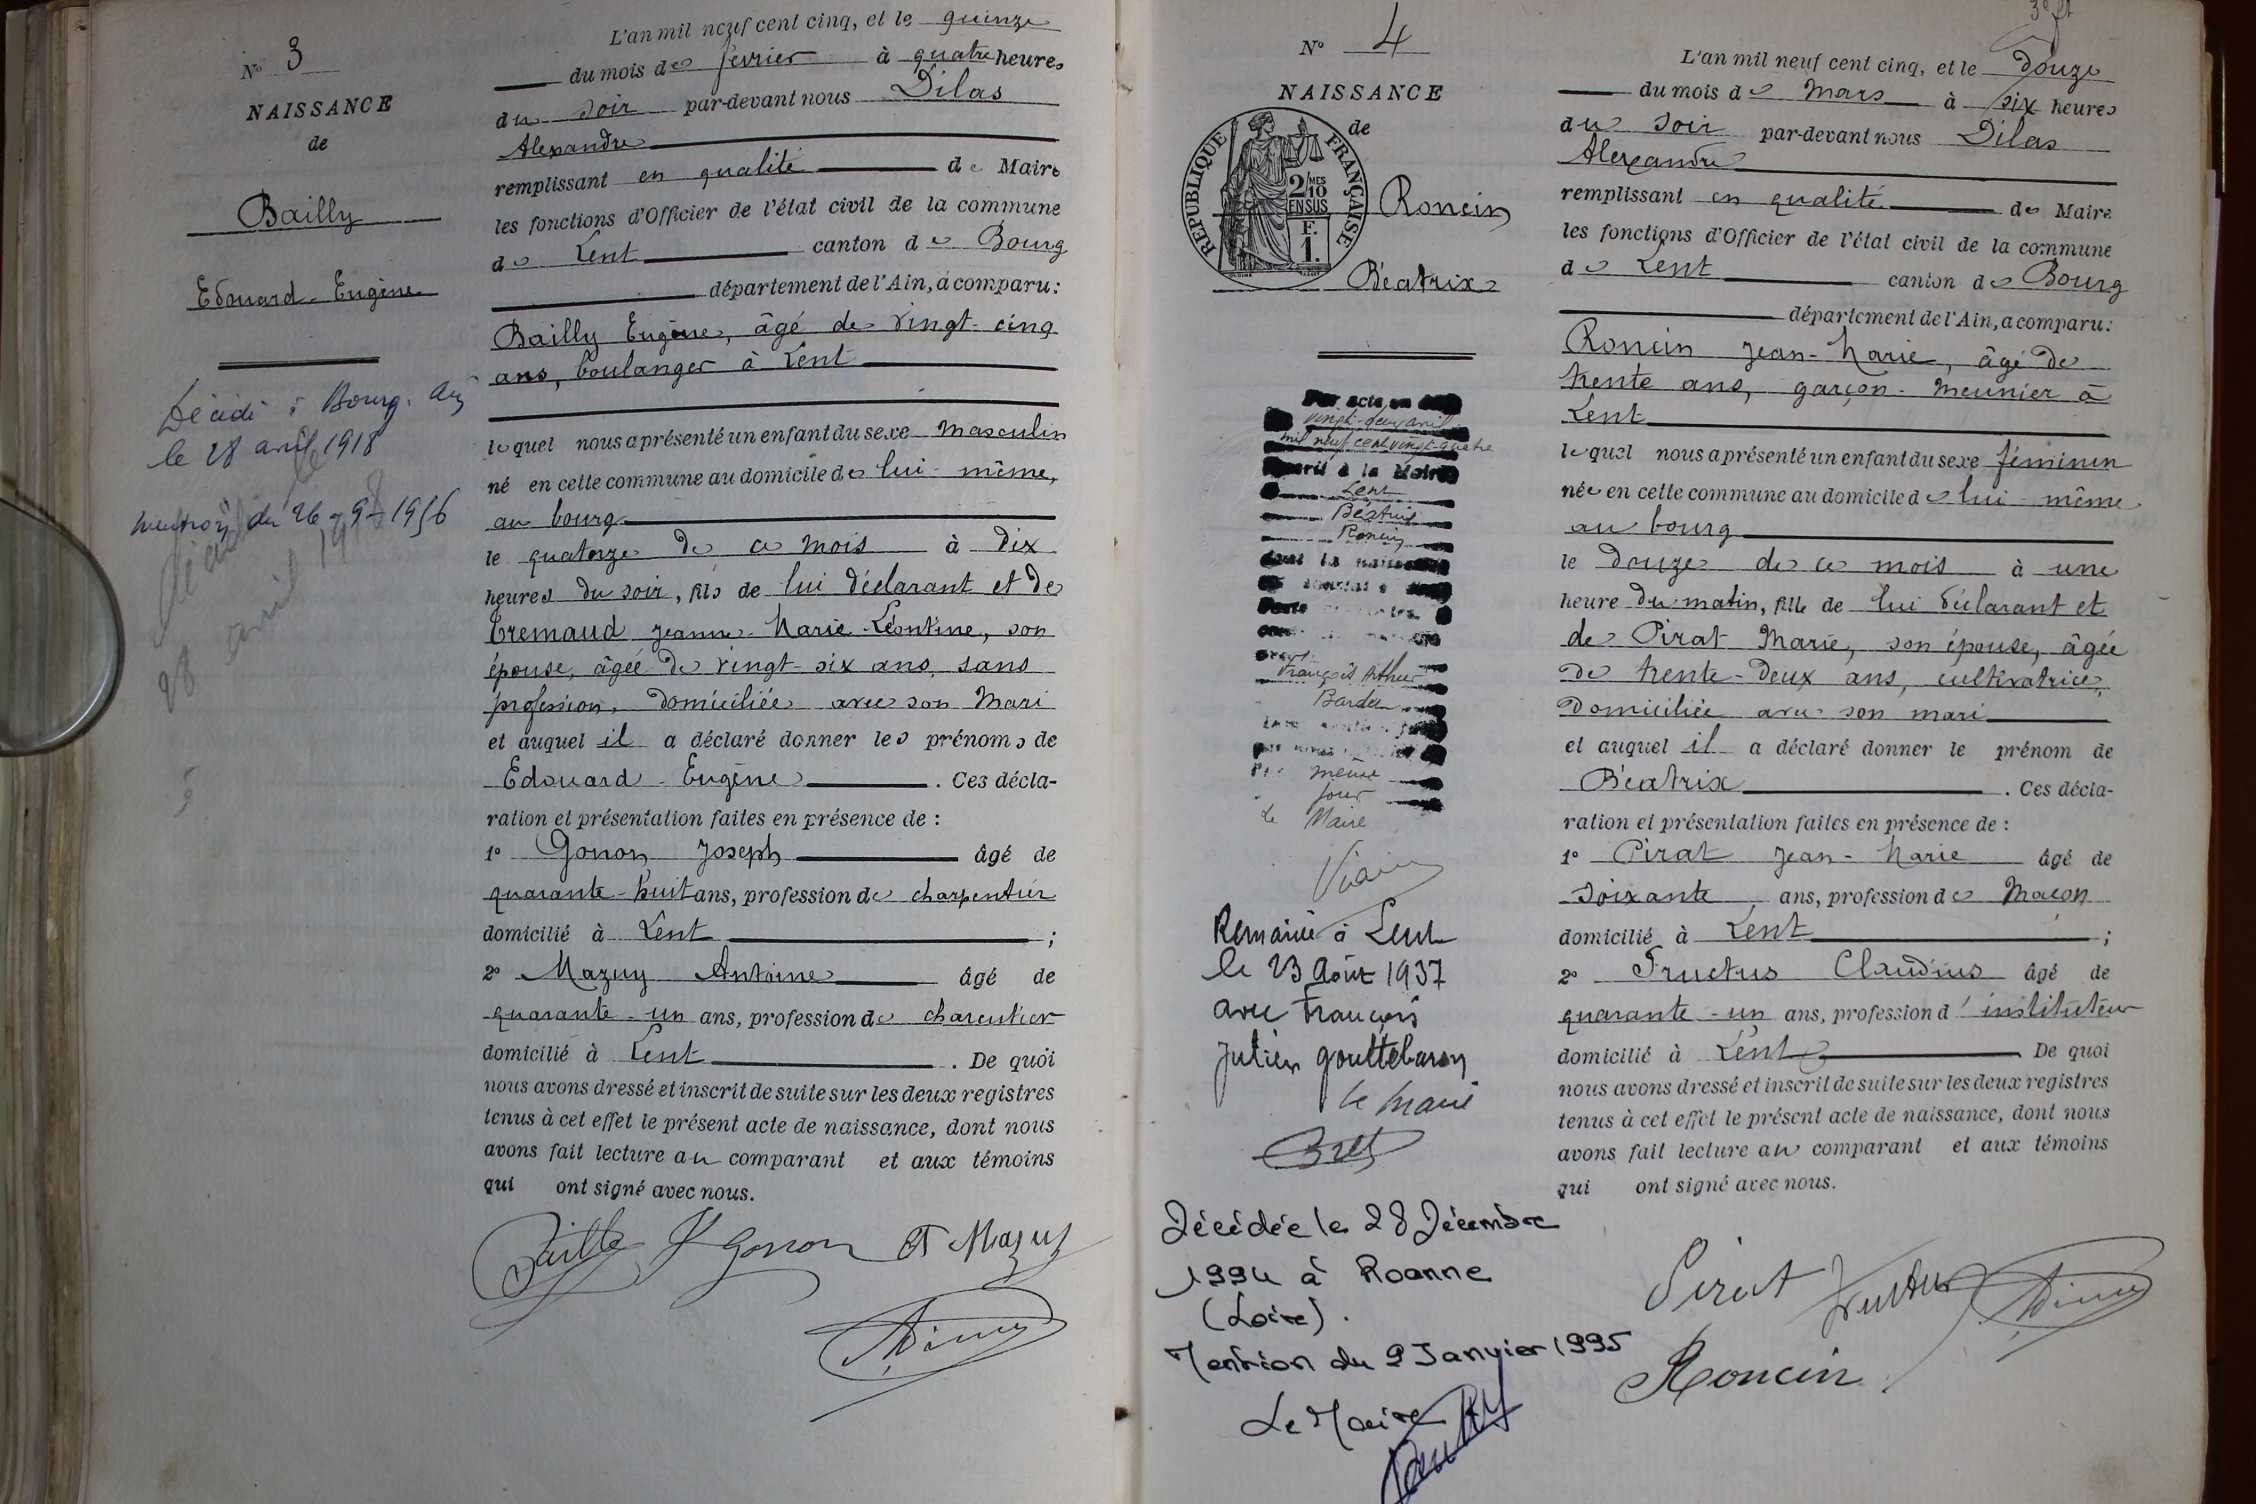 N° 3
NAISSANCE
de
Bailly
Edouard-Eugène
Décédé à Bourg
le 28 avril 1918
du 26-9-1956
28 avril 1918
L'an mil neuf cent cinq, et le quinze
du mois de février à quatre heures
du soir par-devant nous Dilas
Alexandre
remplissant en qualité de Maire
les fonctions d'Officier de l'état civil de la commune
de Lent canton de Bourg
département de l'Ain, a comparu:
Bailly Eugène, âgé de vingt-cinq
ans, boulanger à Lent
lequel nous a présenté un enfant du sexe masculin
né en cette commune au domicile de lui-même,
au bourg
le quatorze de ce mois à dix
heures du soir, fils de lui déclarant et de
Tremaud Jeanne-Marie-Léontine, son
épouse, âgée de vingt-six ans, sans
profession, domiciliée avec son mari
et auquel il a déclaré donner les prénoms de
Edouard-Eugène. Ces décla-
ration et présentation faites en présence de :
1° Gonon Joseph âgé de
quarante-huit ans, profession de charpentier
domicilié à Lent ;
2° Mazuy Antoine âgé de
quarante-un ans, profession de charcutier
domicilié à Lent. De quoi
nous avons dressé et inscrit de suite sur les deux registres
tenus à cet effet le présent acte de naissance, dont nous
avons fait lecture au comparant et aux témoins
qui ont signé avec nous.
Bailly J Gonon A Mazuy
N° 4
NAISSANCE
de
RÉPUBLIQUE FRANÇAISE
2/10 MES
EN SUS
F.
1.
Roncin
Béatrix
Par acte en
vingt-deux avril
mil neuf cent vingt-quatre
inscrit à la Mairie
Lent
Béatrix
Roncin
François Arthur
même
jour
Le Maire
Remariée à Lent
le 23 Août 1937
avec François
Julien Gouttebaron
Le Maire
Bret
Décédée le 28 Décembre
1994 à Roanne
(Loire).
Mention du 9 Janvier 1995
Le Maire
L'an mil neuf cent cinq, et le douze
du mois de Mars à six heures
du soir par-devant nous Dilas
Alexandre
remplissant en qualité de Maire
les fonctions d'Officier de l'état civil de la commune
de Lent canton de Bourg
département de l'Ain, a comparu:
Roncin Jean-Marie, âgé de
trente ans, garçon-meunier à
Lent
lequel nous a présenté un enfant du sexe féminin
née en cette commune au domicile de lui-même
au bourg
le douze de ce mois à une
heure du matin, fille de lui déclarant et
de Pirat Marie, son épouse, âgée
de trente-deux ans, cultivatrice,
domiciliée avec son mari
et auquel il a déclaré donner le prénom de
Béatrix. Ces décla-
ration et présentation faites en présence de :
1° Pirat Jean-Marie âgé de
soixante ans, profession de maçon
domicilié à Lent ;
2° Fructus Claudius âgé de
quarante-un ans, profession d'instituteur
domicilié à Lent De quoi
nous avons dressé et inscrit de suite sur les deux registres
tenus à cet effet le présent acte de naissance, dont nous
avons fait lecture au comparant et aux témoins
qui ont signé avec nous.
Pirat Fructus
Roncin